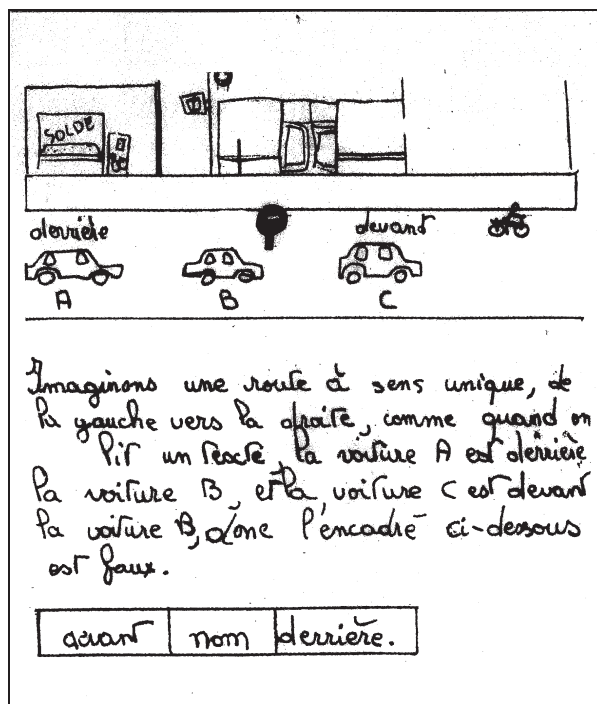 SOLDE
derrière
devant
A
B
C
Imaginons une route à sens unique, de
la gauche vers la droite, comme quand on
lit un texte, la voiture A est derrière
la voiture B, et la voiture C est devant
la voiture B, donc l'encadré ci-dessous
est faux.
avant nom derrière.